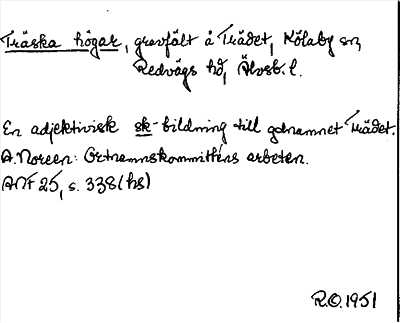 Träska högar, gravfält å Trädet, Kölaby sn,
Redvägs hd, Älvsb. l.
En adjektivisk sk-bildning till gdnamnet Trädet.
A. Noreen: Ortnamnskommitténs arbeten.
ANF 25, s. 338 (hs)
R.O. 1951